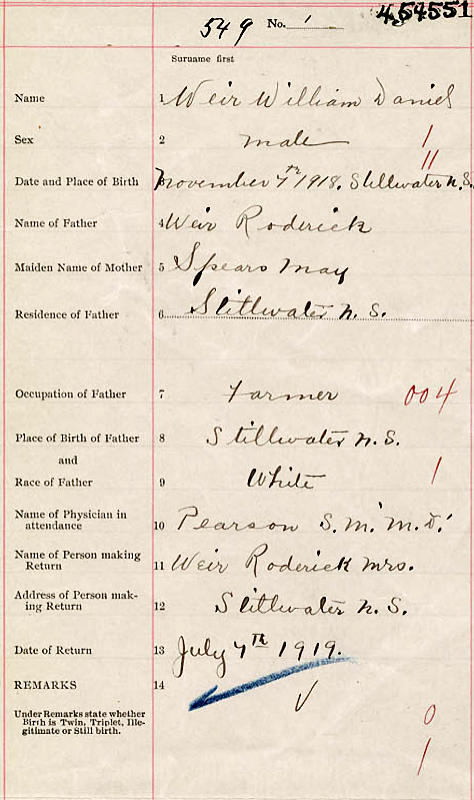 549 No. 1 454551
Surname first
Name 1 Weir William Daniel
Sex 2 male 1
11
Date and Place of Birth 3 November 7th 1918. Stillwater N.S.
Name of Father 4 Weir Roderick
Maiden Name of Mother 5 Spears May
Residence of Father 6 Stillwater N.S.
Occupation of Father 7 Farmer 004
Place of Birth of Father 8 Stillwater N.S.
and
Race of Father 9 White 1
Name of Physician in
attendance 10 Pearson S. M. M.D.
Name of Person making
Return 11 Weir Roderick Mrs.
Address of Person mak-
ing Return 12 Stillwater N.S.
Date of Return 13 July 7th 1919.
REMARKS 14 ✓
Under Remarks state whether
Birth is Twin, Triplet, Ille-
gitimate or Still birth.
0
1